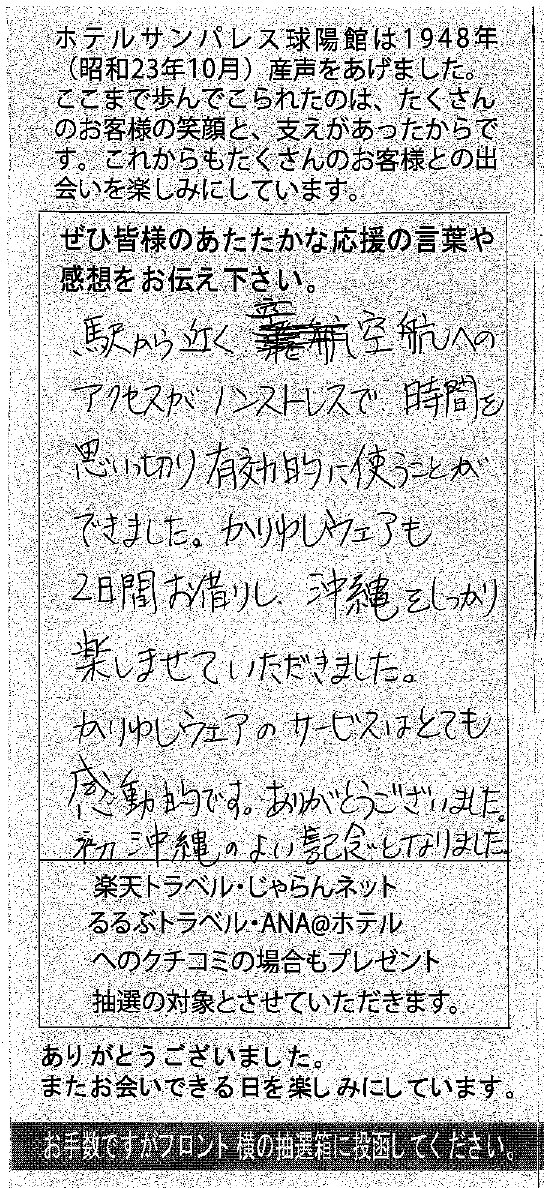 ホテルサンパレス球陽館は1948年
（昭和23年10月）産声をあげました。
ここまで歩んでこられたのは、たくさん
のお客様の笑顔と、支えがあったからで
す。これからもたくさんのお客様との出
会いを楽しみにしています。
ぜひ皆様のあたたかな応援の言葉や
感想をお伝え下さい。
駅から近く 空航への
アクセスがノンストレスで、時間を
思いっ切り有効的に使うことが
できました。かりゆしウェアも
2日間お借りし、沖縄をしっかり
楽しませていただきました。
かりゆしウェアのサービスはとても
感動的です。ありがとうございました。
初沖縄のよい記念となりました。
楽天トラベル・じゃらんネット
るるぶトラベル・ANA@ホテル
へのクチコミの場合もプレゼント
抽選の対象とさせていただきます。
ありがとうございました。
またお会いできる日を楽しみにしています。
お手数ですがフロント横の抽選箱に投函してください。